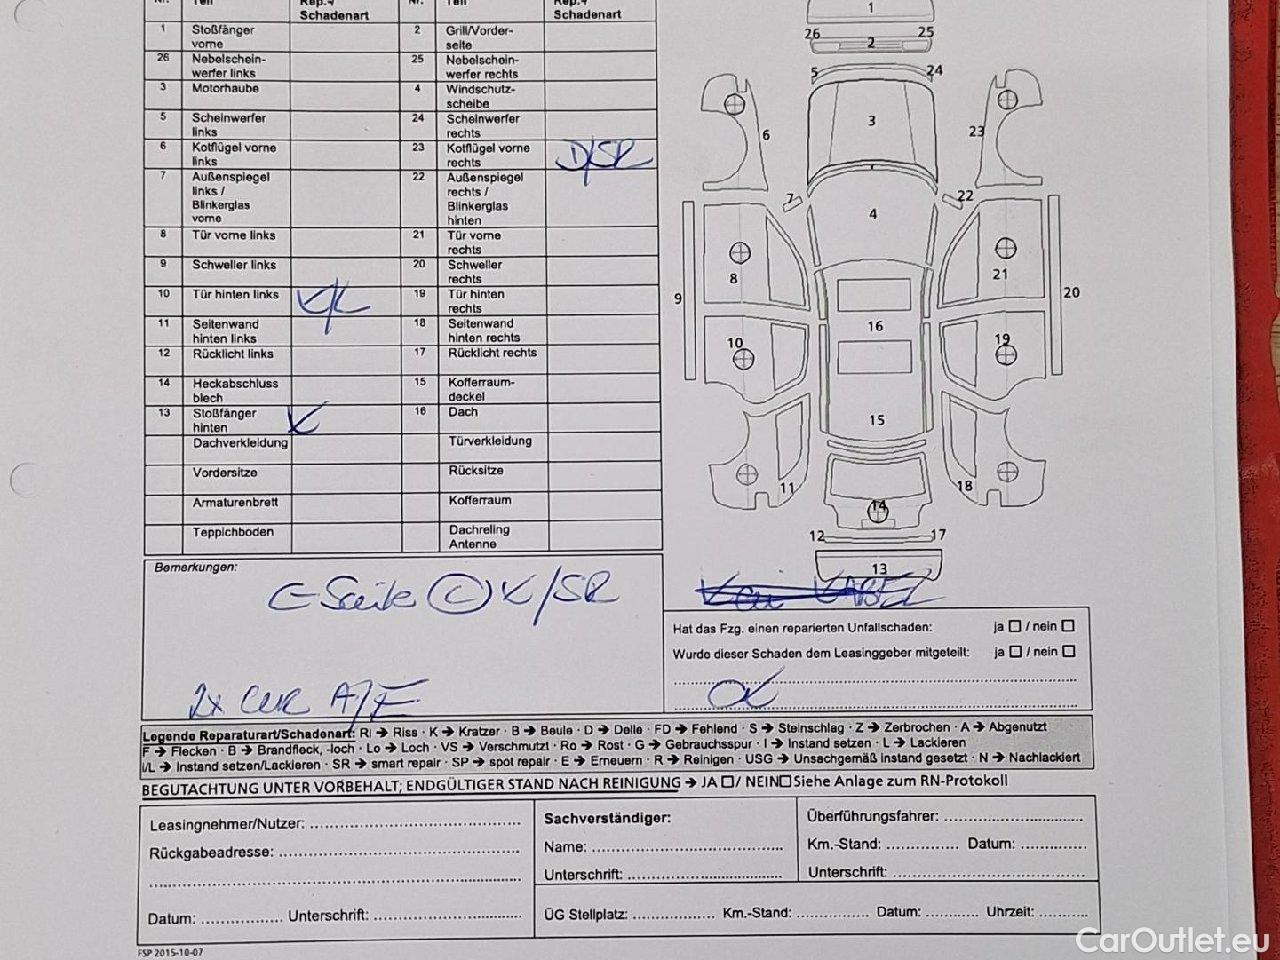 Nr. Teil Rep.+ Schadenart Nr. Teil Rep.+ Schadenart
1 Stoßfänger vorne 2 Grill/Vorder-seite
26 Nebelschein-werfer links 25 Nebelschein-werfer rechts
3 Motorhaube 4 Windschutz-scheibe
5 Scheinwerfer links 24 Scheinwerfer rechts
6 Kotflügel vorne links 23 Kotflügel vorne rechts D/SR
7 Außenspiegel links / Blinkerglas vorne 22 Außenspiegel rechts / Blinkerglas hinten
8 Tür vorne links 21 Tür vorne rechts
9 Schweller links 20 Schweller rechts
10 Tür hinten links 19 Tür hinten rechts
11 Seitenwand hinten links 18 Seitenwand hinten rechts
12 Rücklicht links 17 Rücklicht rechts
14 Heckabschluss blech 15 Kofferraum-deckel
13 Stoßfänger hinten K 16 Dach
Dachverkleidung Türverkleidung
Vordersitze Rücksitze
Armaturenbrett Kofferraum
Teppichboden Dachreling Antenne
1
26 2 25
5 24
3
6 23
7 22
4
8 21
9 20
16
10 19
15
11 18
14
12 17
13
Bemerkungen:
K/SR
2x A/E
Hat das Fzg. einen reparierten Unfallschaden: ja ☐ / nein ☐
Wurde dieser Schaden dem Leasinggeber mitgeteilt: ja ☐ / nein ☐
OK
Legende Reparaturart/Schadenart: RI → Riss · K → Kratzer · B → Beule · D → Delle · FD → Fehlend · S → Steinschlag · Z → Zerbrochen · A → Abgenutzt
F → Flecken · B → Brandfleck, -loch · Lo → Loch · VS → Verschmutzt · Ro → Rost · G → Gebrauchsspur · I → Instand setzen · L → Lackieren
I/L → Instand setzen/Lackieren · SR → smart repair · SP → spot repair · E → Erneuern · R → Reinigen · USG → Unsachgemäß instand gesetzt · N → Nachlackiert
BEGUTACHTUNG UNTER VORBEHALT; ENDGÜLTIGER STAND NACH REINIGUNG → JA ☐/ NEIN☐ Siehe Anlage zum RN-Protokoll
Leasingnehmer/Nutzer:
Rückgabeadresse:
Datum: Unterschrift:
Sachverständiger:
Name:
Unterschrift:
Überführungsfahrer:
Km.-Stand: Datum:
Unterschrift:
ÜG Stellplatz: Km.-Stand: Datum: Uhrzeit:
FSP 2015-10-07
CarOutlet.eu